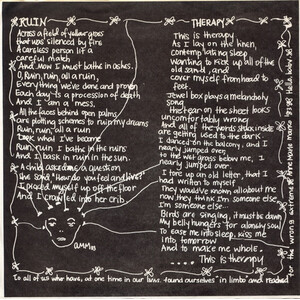 RUIN
Across a field of yellow grass
that was silenced by fire
A careless person lit a
careful match
And now I must bathe in ashes.
O, Ruin, ruin, all a ruin,
Everything we've done and proven
Each day is a procession of death
And I am a mess.
All the faces behind open palms
are plotting schemes to ruin my dreams
Ruin, ruin, all a ruin
Look what I've become
Ruin, ruin I bathe in the ruins
And I bask in ruin in the sun.
A child asked me a question
she said do you feel and lives
I picked myself up off the floor
And I crawled into her crib.
THERAPY
This is therapy
As I lay on the linen,
contemplating sleep
Wanting to kick up all of the
old sand, and
cover myself from head to
feet.
Jewel box plays a melancholy
song
The tear on the sheet looks
uncomfortably wrong
And all of the words
are getting used to the dark.
I danced on the balcony, and I
nearly jumped over
to the wet grass below me, I
nearly jumped over.
I tore up an old letter, that I
had written to myself
They would've known all about me
now they think I'm someone else
I'm someone else...
Birds are singing, it must be dawn
My belly hungers for a lonely soul
To ease me into sleep, kiss me
into tomorrow
And to make me whole.
.... This is therapy
To all of us who have, at one time in our lives, found ourselves "in limbo" and reached
for the wrong